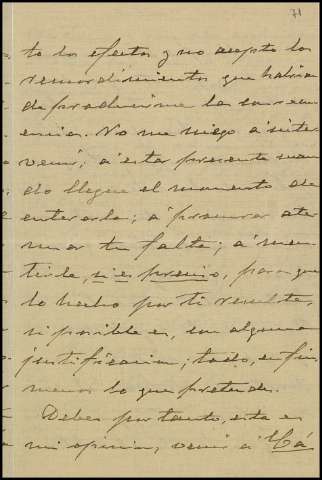 71
to los efectos y no acepto los
remordimientos que habria
de producirme la
No me niego a inter
venir; a estar presente cuan
do llegue el momento de
enterarla; a procurar ate
nuar tu falta; a men
tirle, si es preciso, para que
lo hecho por ti resulte,
si posible es, con alguna
justificacion; todo, en fin,
menos lo que pretendes.
Debes por tanto, esta es
mi opinion, venir á